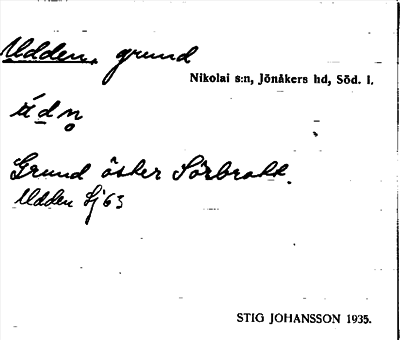 Udden, grund
Nikolai s:n, Jönåkers hd, Söd. l.
Grund öster Sörbrokk.
Udden Sj 63
STIG JOHANSSON 1935.